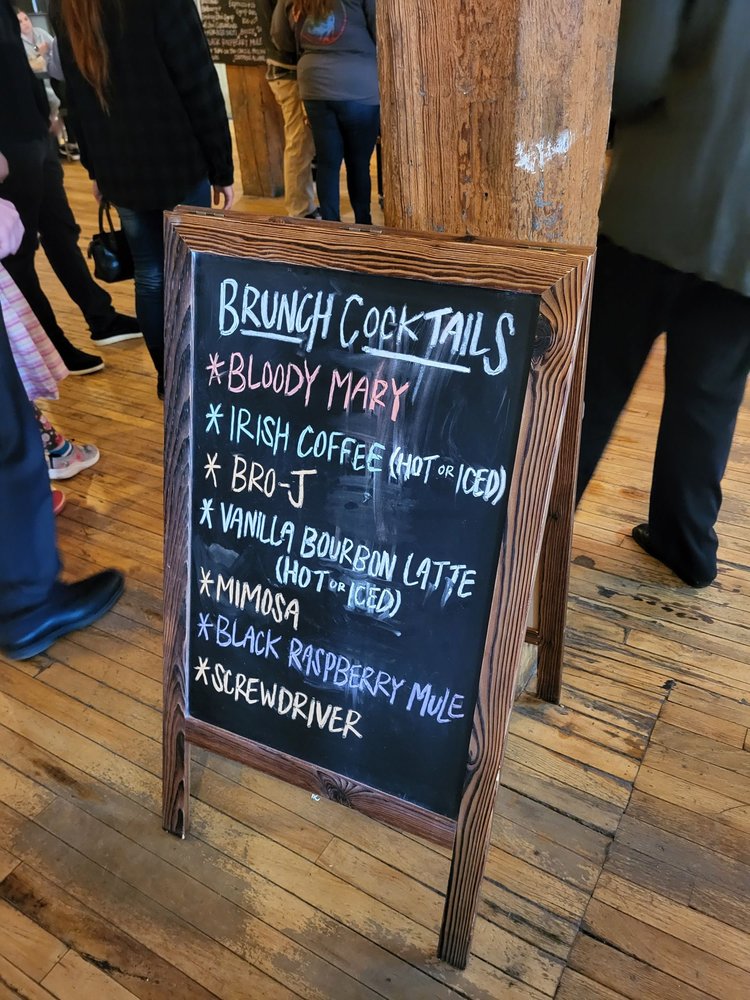 BLACK RASPBERRY MULE
BRUNCH COCKTAILS
*BLOODY MARY
*IRISH COFFEE (HOT OR ICED)
*BRO-J
*VANILLA BOURBON LATTE
(HOT OR ICED)
*MIMOSA
*BLACK RASPBERRY MULE
*SCREWDRIVER